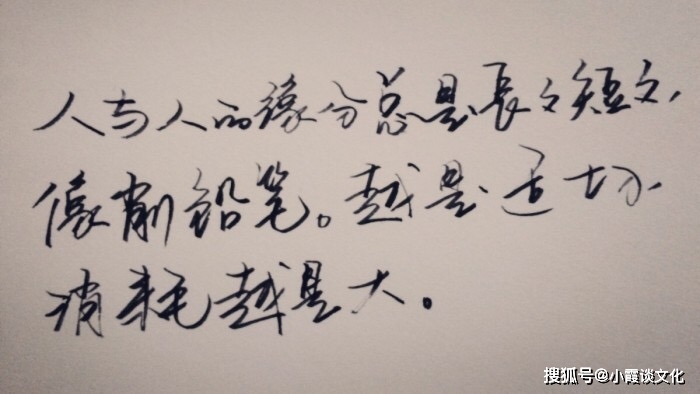 人与人的缘分总是長々短々，
像削铅笔。越是迫切，
消耗越是大。
搜狐号@小霞谈文化